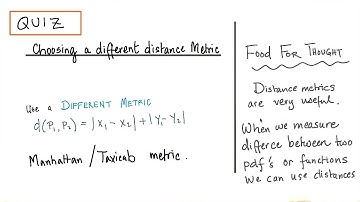 QUIZ
Choosing a different distance Metric
Use a DIFFERENT METRIC
d(P₁, P₂) = |x₁ - x₂| + |y₁ - y₂|
Manhattan / Taxicab metric.
Food For Thought
Distance metrics
are very useful.
When we measure
differce between two
pdf's or functions
we can use distances